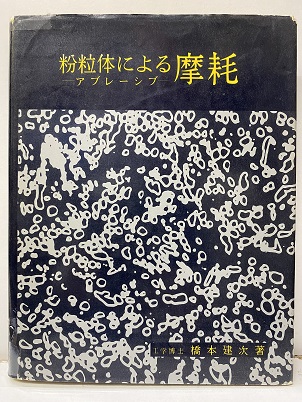 粉粒体による摩耗
―アブレーシブ―
工学博士 橋本建次著